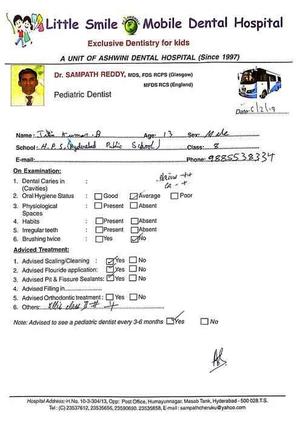 Little Smile Mobile Dental Hospital
Exclusive Dentistry for kids
A UNIT OF ASHWINI DENTAL HOSPITAL (Since 1997)
Dr. SAMPATH REDDY, MDS, FDS RCPS (Glasgow)
MFDS RCS (England)
Pediatric Dentist
Date:
Name: Kumar. B Age: 13 Sex: Male
School: H.P.S (Hyderabad Public School) Class: 8
E-mail: Phone: 9885538334
On Examination:
1. Dental Caries in (Cavities)
2. Oral Hygiene Status : Good Average Poor
3. Physiological Spaces : Present Absent
4. Habits : Present Absent
5. Irregular teeth : Present Absent
6. Brushing twice : Yes No
Adviced Treatment:
1. Advised Scaling/Cleaning : Yes No
2. Advised Flouride application: Yes No
3. Advised Pit & Fissure Sealants: Yes No
4. Advised Filling in
5. Advised Orthodontic treatment : Yes No
6. Others:
Note: Advised to see a pediatric dentist every 3-6 months Yes No
Hospital Address: H.No. 10-3-304/13, Opp: Post Office, Humayunnagar, Masab Tank, Hyderabad - 500 028 T.S.
Tel: (C) 23537612, 23535656, 23590693, 23535658, E-mail : sampathcheruku@yahoo.com